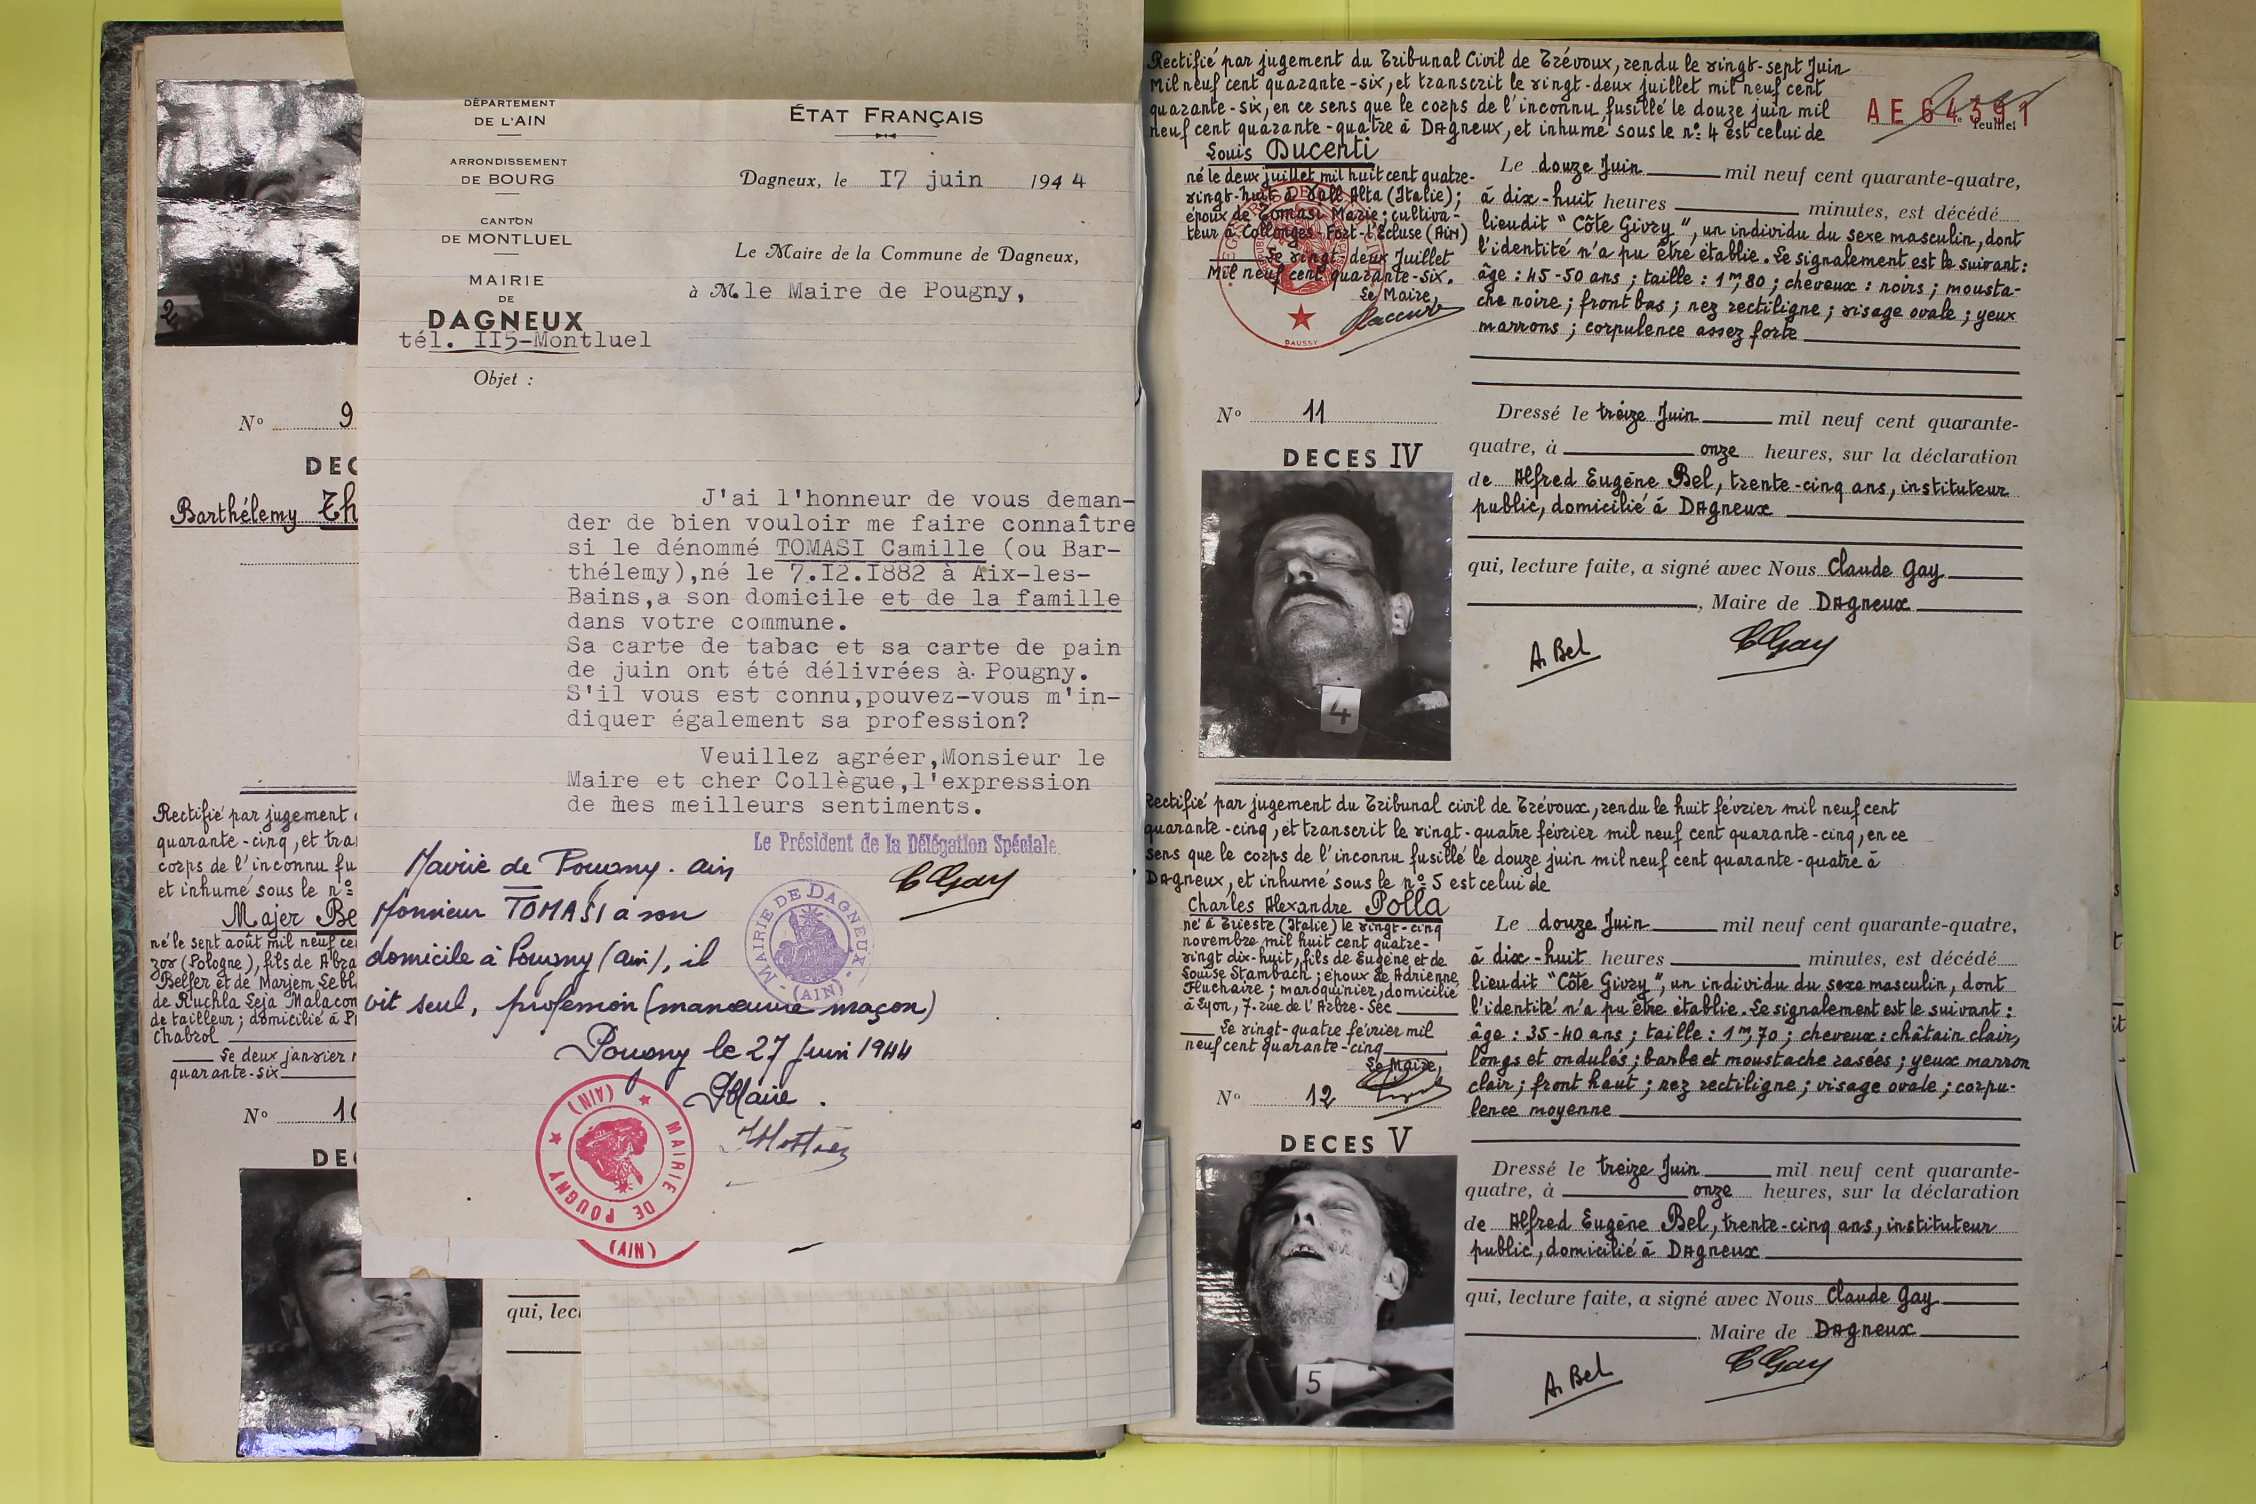 2
Nº 9
DEC
Barthélemy Th
Rectifié par jugement
quarante-cinq, et tra
corps de l'inconnu fu
et inhumé sous le nº
Majer Be
né le sept août mil neuf ce
zor (Pologne), fils de Abra
Belfer et de Marjem Lebl
de Ruchla Leja Malacon
de tailleur; domicilié à P
Chabrol
Le deux janvier
quarante-six
Nº 10
DEC
qui, lect
DÉPARTEMENT
DE L'AIN
ARRONDISSEMENT
DE BOURG
CANTON
DE MONTLUEL
MAIRIE
DE
DAGNEUX
tél. II5-Montluel
Objet :
ÉTAT FRANÇAIS
Dagneux, le 17 juin 1944
Le Maire de la Commune de Dagneux,
à M. le Maire de Pougny,
J'ai l'honneur de vous deman-
der de bien vouloir me faire connaître
si le dénommé TOMASI Camille (ou Bar-
thélemy),né le 7.I2.I882 à Aix-les-
Bains,a son domicile et de la famille
dans votre commune.
Sa carte de tabac et sa carte de pain
de juin ont été délivrées à Pougny.
S'il vous est connu,pouvez-vous m'in-
diquer également sa profession?
Veuillez agréer,Monsieur le
Maire et cher Collègue,l'expression
de mes meilleurs sentiments.
Le Président de la Délégation Spéciale
C Gay
MAIRIE DE DAGNEUX
(AIN)
Mairie de Pougny. ain
Monsieur TOMASI a son
domicile à Pougny (ain), il
vit seul, profession (manœuvre maçon)
Pougny le 27 Juin 1944
Maire.
MAIRIE DE POUGNY
(AIN)
(AIN)
Rectifié par jugement du Tribunal Civil de Trévoux, rendu le vingt-sept Juin
Mil neuf cent quarante-six, et transcrit le vingt-deux juillet mil neuf cent
quarante-six, en ce sens que le corps de l'inconnu fusillé le douze juin mil
neuf cent quarante-quatre à Dagneux, et inhumé sous le nº 4 est celui de
AE64391
feuillet
Louis Ducenti
né le deux juillet mil huit cent quatre-
vingt-huit à Vall Alta (Italie);
époux de Tomasi Marie; cultiva-
teur à Collonges-Fort-l'Ecluse (Ain)
Le vingt deux Juillet
Mil neuf cent quarante-six.
Le Maire,
DAUSSY
Nº 11
DECES IV
4
Le douze Juin mil neuf cent quarante-quatre,
à dix-huit heures minutes, est décédé
lieudit "Côte Givry", un individu du sexe masculin, dont
l'identité n'a pu être établie. Le signalement est le suivant:
âge : 45-50 ans ; taille : 1m,80 ; cheveux : noirs ; mousta-
che noire ; front bas ; nez rectiligne ; visage ovale ; yeux
marrons ; corpulence assez forte
Dressé le treize Juin mil neuf cent quarante-
quatre, à onze heures, sur la déclaration
de Alfred Eugène Bel, trente-cinq ans, instituteur
public, domicilié à Dagneux
qui, lecture faite, a signé avec Nous Claude Gay
, Maire de Dagneux
A. Bel
C Gay
Rectifié par jugement du Tribunal civil de Trévoux, rendu le huit février mil neuf cent
quarante-cinq, et transcrit le vingt-quatre février mil neuf cent quarante-cinq, en ce
sens que le corps de l'inconnu fusillé le douze juin mil neuf cent quarante-quatre à
Dagneux, et inhumé sous le nº 5 est celui de
Charles Alexandre Polla
né à Trieste (Italie) le vingt-cinq
novembre mil huit cent quatre-
vingt dix-huit, fils de Eugène et de
Louise Stambach ; époux de Adrienne
Fluchaire ; maroquinier, domicilié
à Lyon, 7. rue de l'Arbre-Sec
Le vingt-quatre février mil
neuf cent quarante-cinq
Le Maire,
Nº 12
DECES V
5
Le douze Juin mil neuf cent quarante-quatre,
à dix-huit heures minutes, est décédé
lieudit "Côte Givry", un individu du sexe masculin, dont
l'identité n'a pu être établie. Le signalement est le suivant :
âge : 35-40 ans ; taille : 1m,70 ; cheveux : châtain clair,
longs et ondulés ; barbe et moustache rasées ; yeux marron
clair ; front haut ; nez rectiligne ; visage ovale ; corpu-
lence moyenne
Dressé le treize Juin mil neuf cent quarante-
quatre, à onze heures, sur la déclaration
de Alfred Eugène Bel, trente-cinq ans, instituteur
public, domicilié à Dagneux
qui, lecture faite, a signé avec Nous Claude Gay
, Maire de Dagneux
A. Bel
C Gay